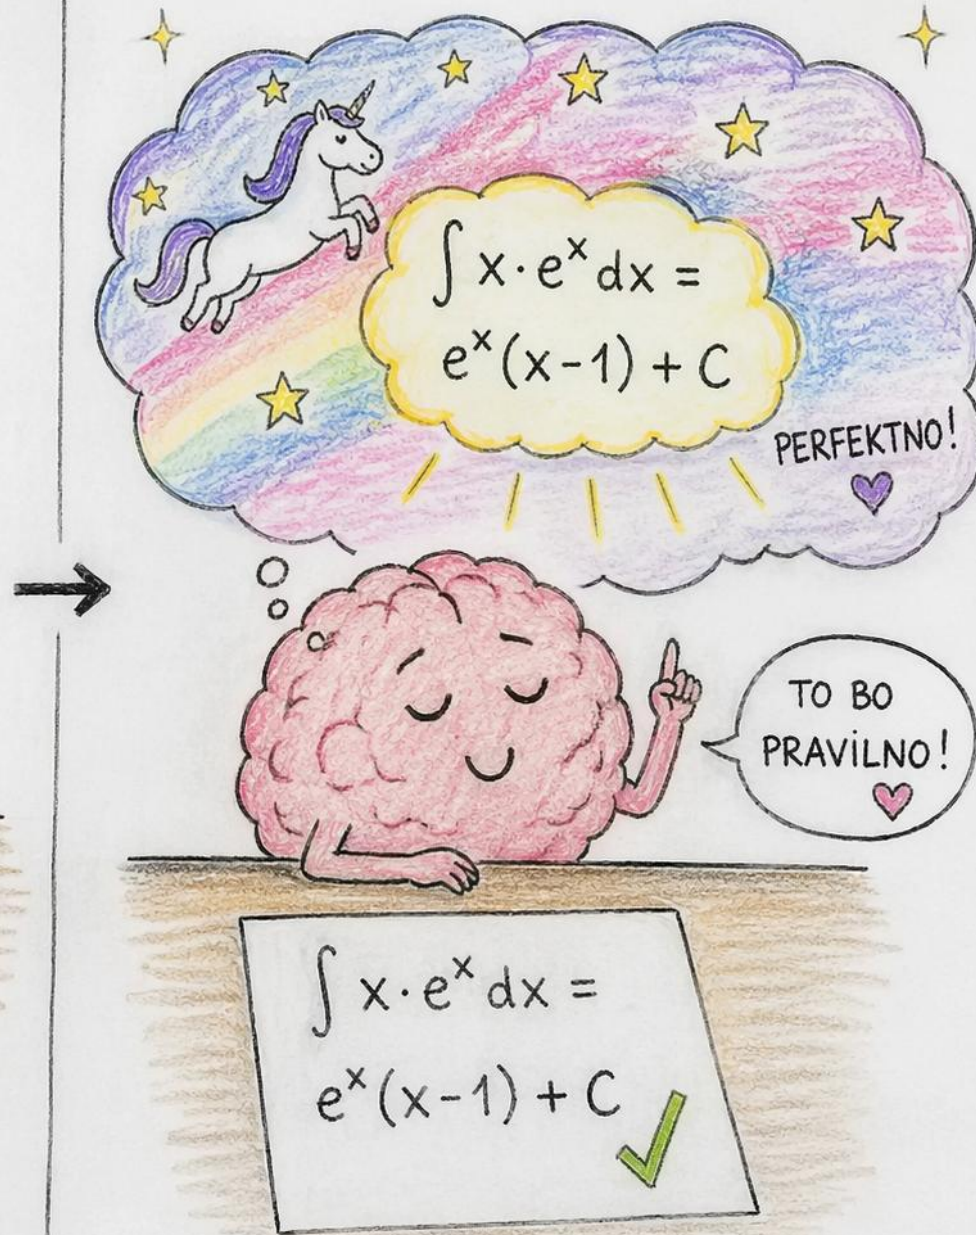 ∫ x·eˣ dx =
eˣ(x-1) + C
PERFEKTNO!
TO BO
PRAVİLNO!
∫ x·eˣ dx =
eˣ(x-1) + C